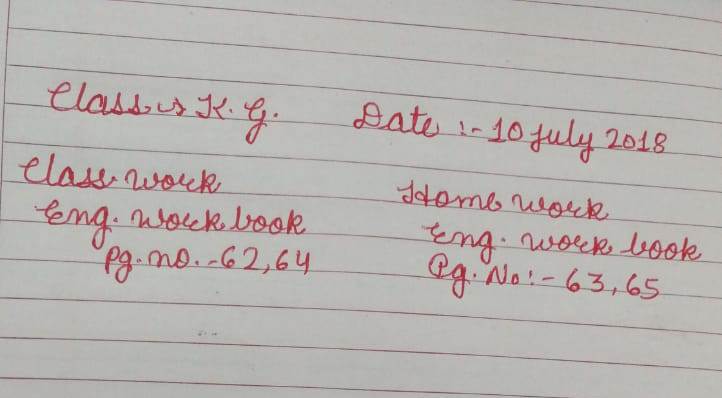 Class :→ K.G. Date :- 10 July 2018
Class work Home work
Eng. work book Eng. work book
Pg. no. - 62, 64 Pg. No :- 63, 65